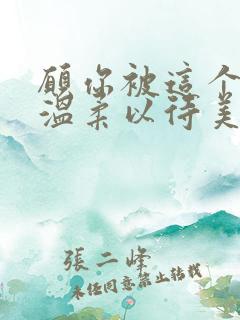 願你被這个
温柔以待美
張二峰
未经同意禁止转载